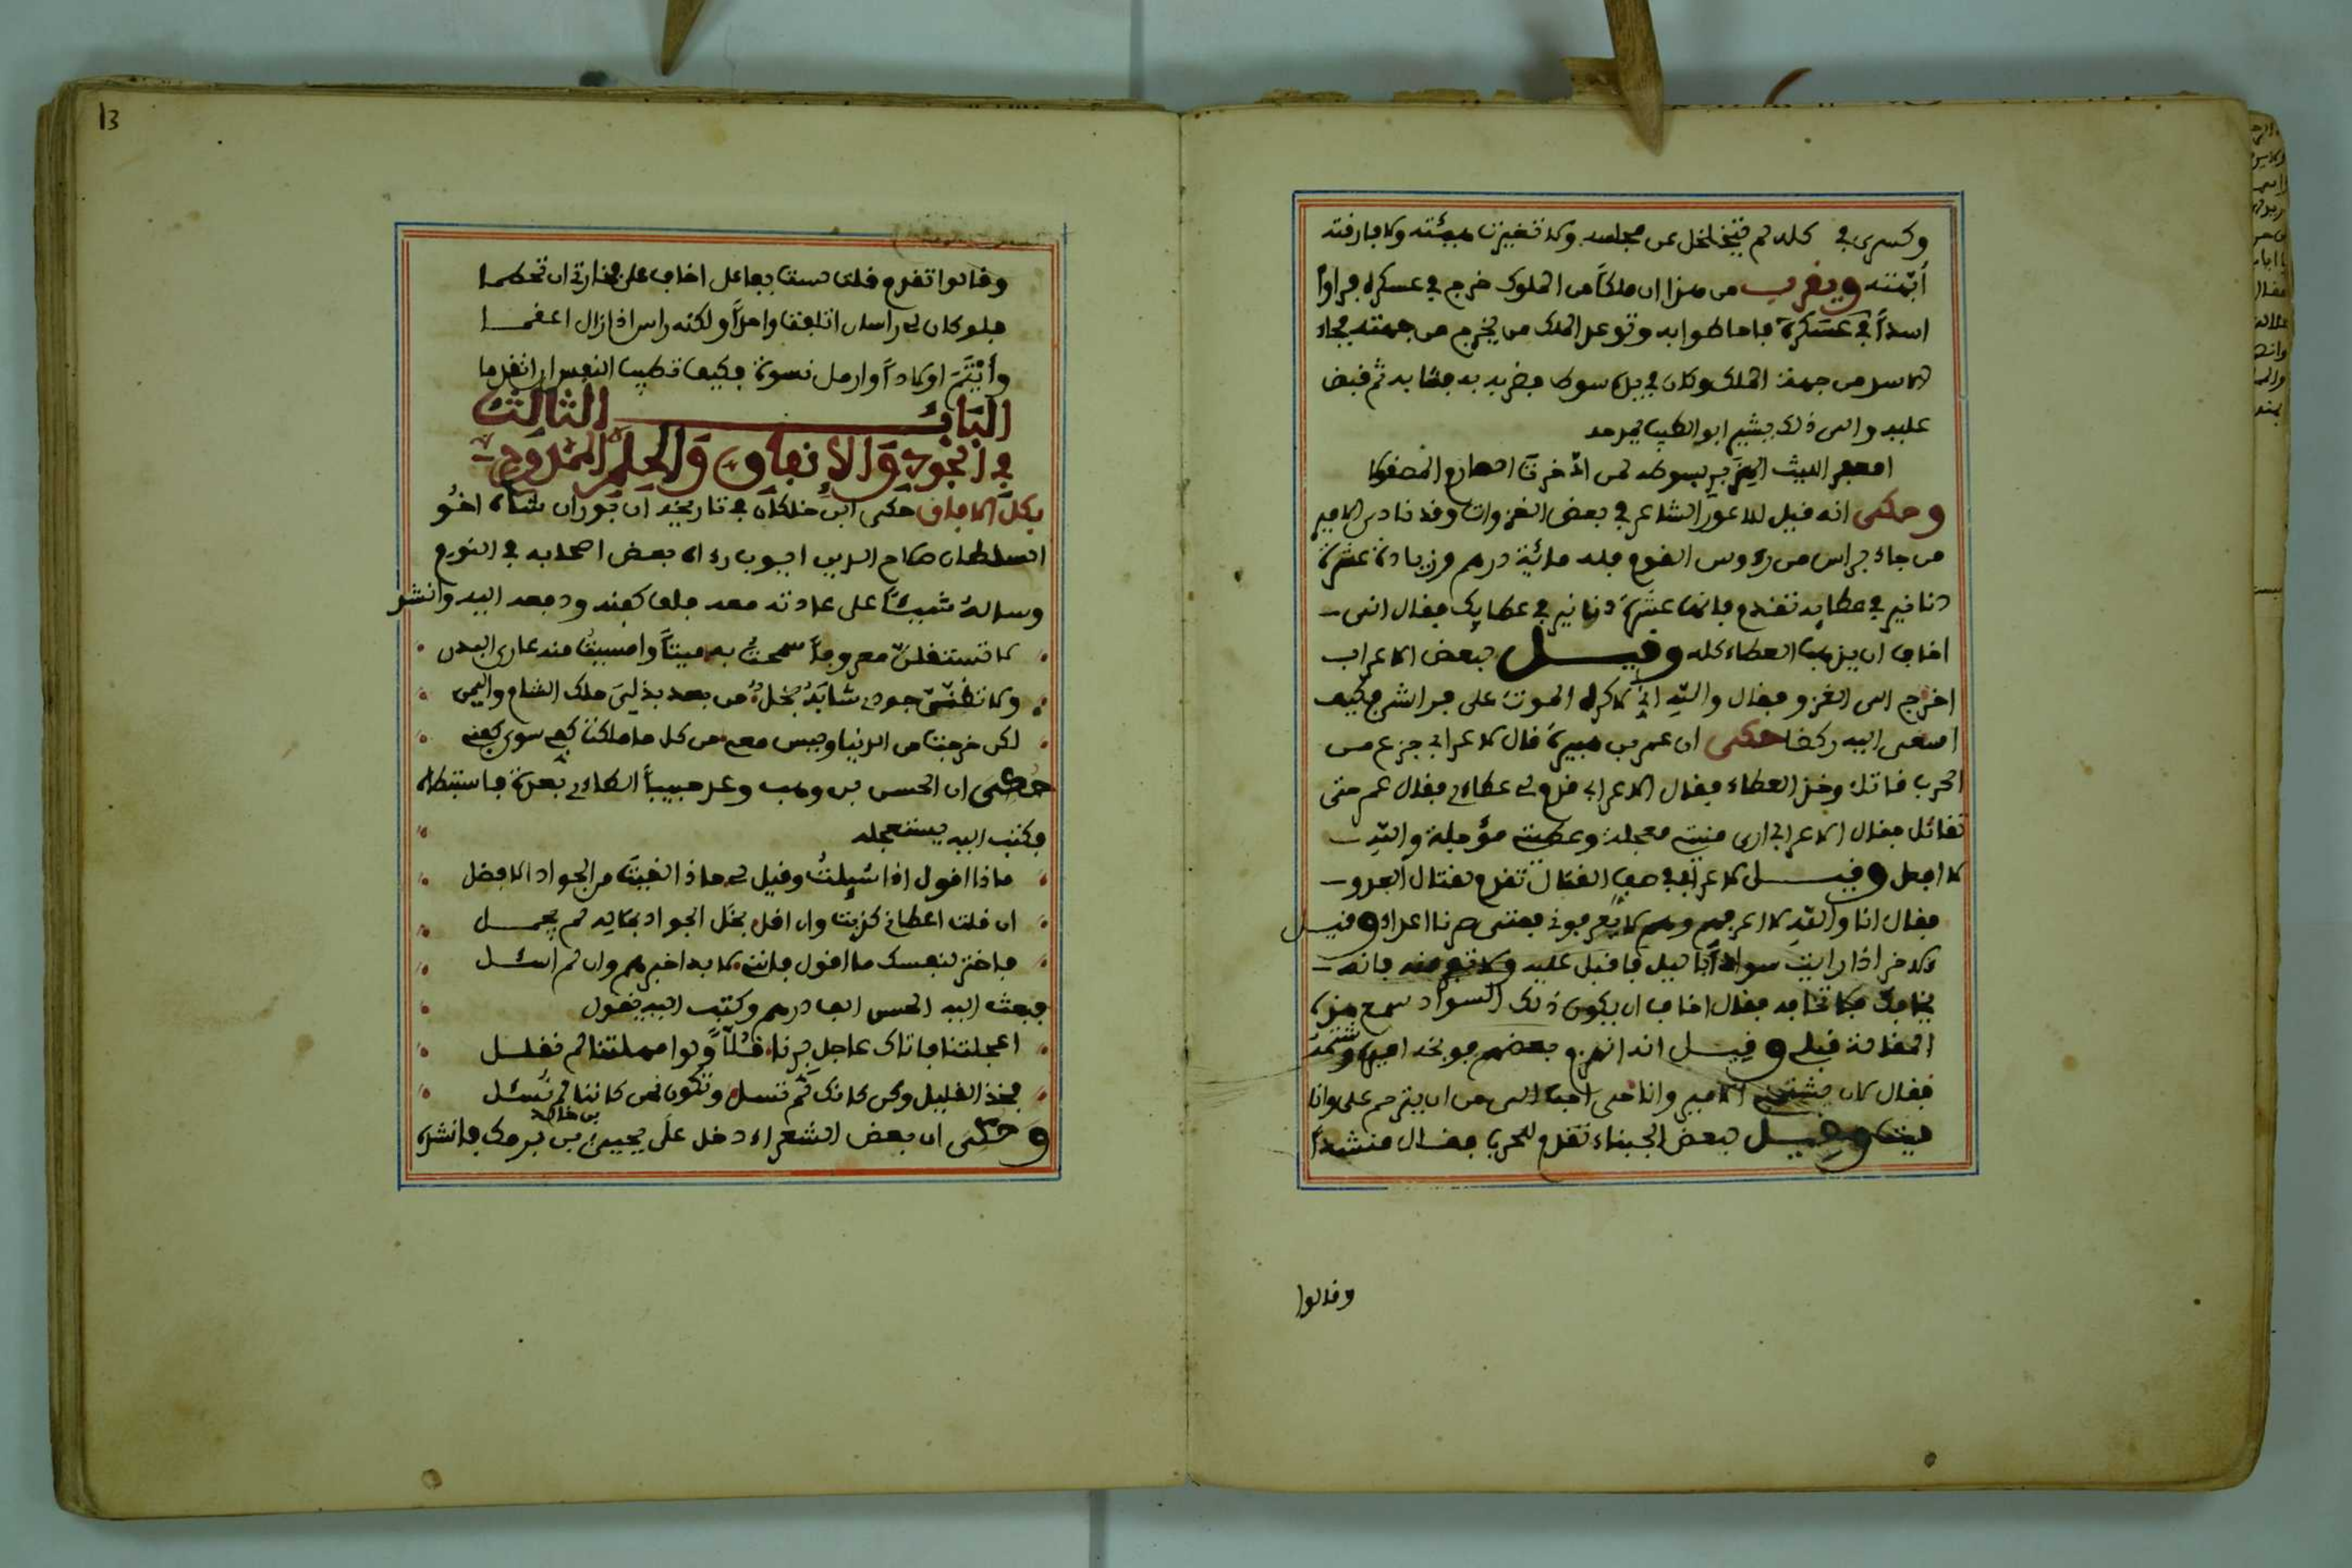 وكسرى في كله لم يتخلخل عن مجلسه ولا تغيرت هيئته ولا فارقته
أبهته ويقرب من هذا ان ملكا من الملوك خرج في عسكره فراوا
اسدا في عسكره فاحاطوا به وتوعد الملك من يخرج من جهته فجاء
الاسد من جهة الملك وكان في يده سوط فضربه به فهابه ثم قبض
عليه والى ذلك يشير ابو الطيب يمدحه
امعفر الليث الهزبر بسوطه لمن ادّخرت الصارم المصقولا
وحكى انه قيل للاعور الشاعر في بعض الغزوات وقد نادى الامير
من جاء براس من رءوس القوم فله مائة درهم وزيادة عشرة
دنانير في عطايه تقدم فانها عشرة دنانير في عطايك فقال انى
اخاف ان يذهب العطاء كله وقيل لبعض الاعراب
اخرج الى الغزو فقال والله انى لاكره الموت على فراشى فكيف
اسعى اليه ركضا حكى ان عمر بن هبيرة قال لاعرابى جزع من
الحرب قاتل وخذ العطاء فقال الاعرابى قدم لى عطاءى فقال عمر حتى
تقاتل فقال الاعرابى ارى منيتى معجلة وعطيتى مؤجلة والله
لا افعل وقيل لاعرابى في صف القتال تقدم لقتال العدو
فقال انا والله لا اعرفهم وهم لا يعرفونى فمتى صرنا اعداء وقيل
لاخر اذا رايت سوادا بالليل فاقبل عليه ولا تفر منه فانه
يخافك كما تخافه فقال اخاف ان يكون ذلك السواد سمع هذه
المقالة قبلى وقيل انه انهزم بعضهم فوبخه اميره وشتمه
فقال لان يشتمنى الامير وانا حى احب الى من ان يترحم على وانا
ميت وقيل لبعض الجبناء تقدم للحرب فقال منشدا
وقالوا
13
وقالوا تقدم قلت لست بفاعل اخاف على فخارتى ان تحطما
فلو كان لى راسان اتلفت واحدا ولكنه راس اذا زال اعقما
وأيتم اولادا وارمل نسوة فكيف تطيب النفس ان اتقدما
الباب الثالث
في الجود والانفاق والحلم الممدوح
بكل الافاق حكى ابن خلكان في تاريخه ان توران شاه اخو
السلطان صلاح الدين ايوب راه بعض اصحابه في النوم
وساله شيئا على عادته معه فلف كفنه ودفعه اليه وانشد
لا تستقلن معروفا سمحت به ميتا وامسيت منه عارى البدن
ولا تظنن جودى شابه بخل من بعد بذلى ملك الشام واليمن
لكن خرجت من الدنيا وليس معى من كل ما ملكت كفى سوى كفنى
حكى ان الحسن بن وهب وعد حبيبا الطاءى بعدة فاستبطاه
فكتب اليه يستعجله
ماذا اقول اذا سئلت وقيل لى ماذا لقيت من الجواد الافضل
ان قلت اعطانى كذبت وان اقل بخل الجواد بماله لم يجمل
فاختر لنفسك ما اقول فاننى لا بد اخبرهم وان لم اسئل
فبعث اليه الحسن الف درهم وكتب اليه يقول
اعجلتنا فاتاك عاجل برنا قلا ولو امهلتنا لم نقلل
فخذ القليل وكن كانك لم تسل ونكون نحن كاننا لم نسئل
وحكى ان بعض الشعراء دخل على يحيى بن خالد بن برمك فانشده